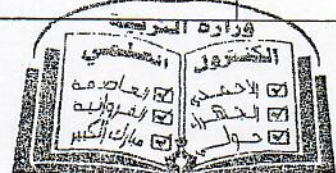 وزارة التربية
الكنترول
☑ الأحمدي
☑ الجهراء
☑ حولي
التعليمي
☑ العاصمة
☑ الفروانية
☑ مبارك الكبير